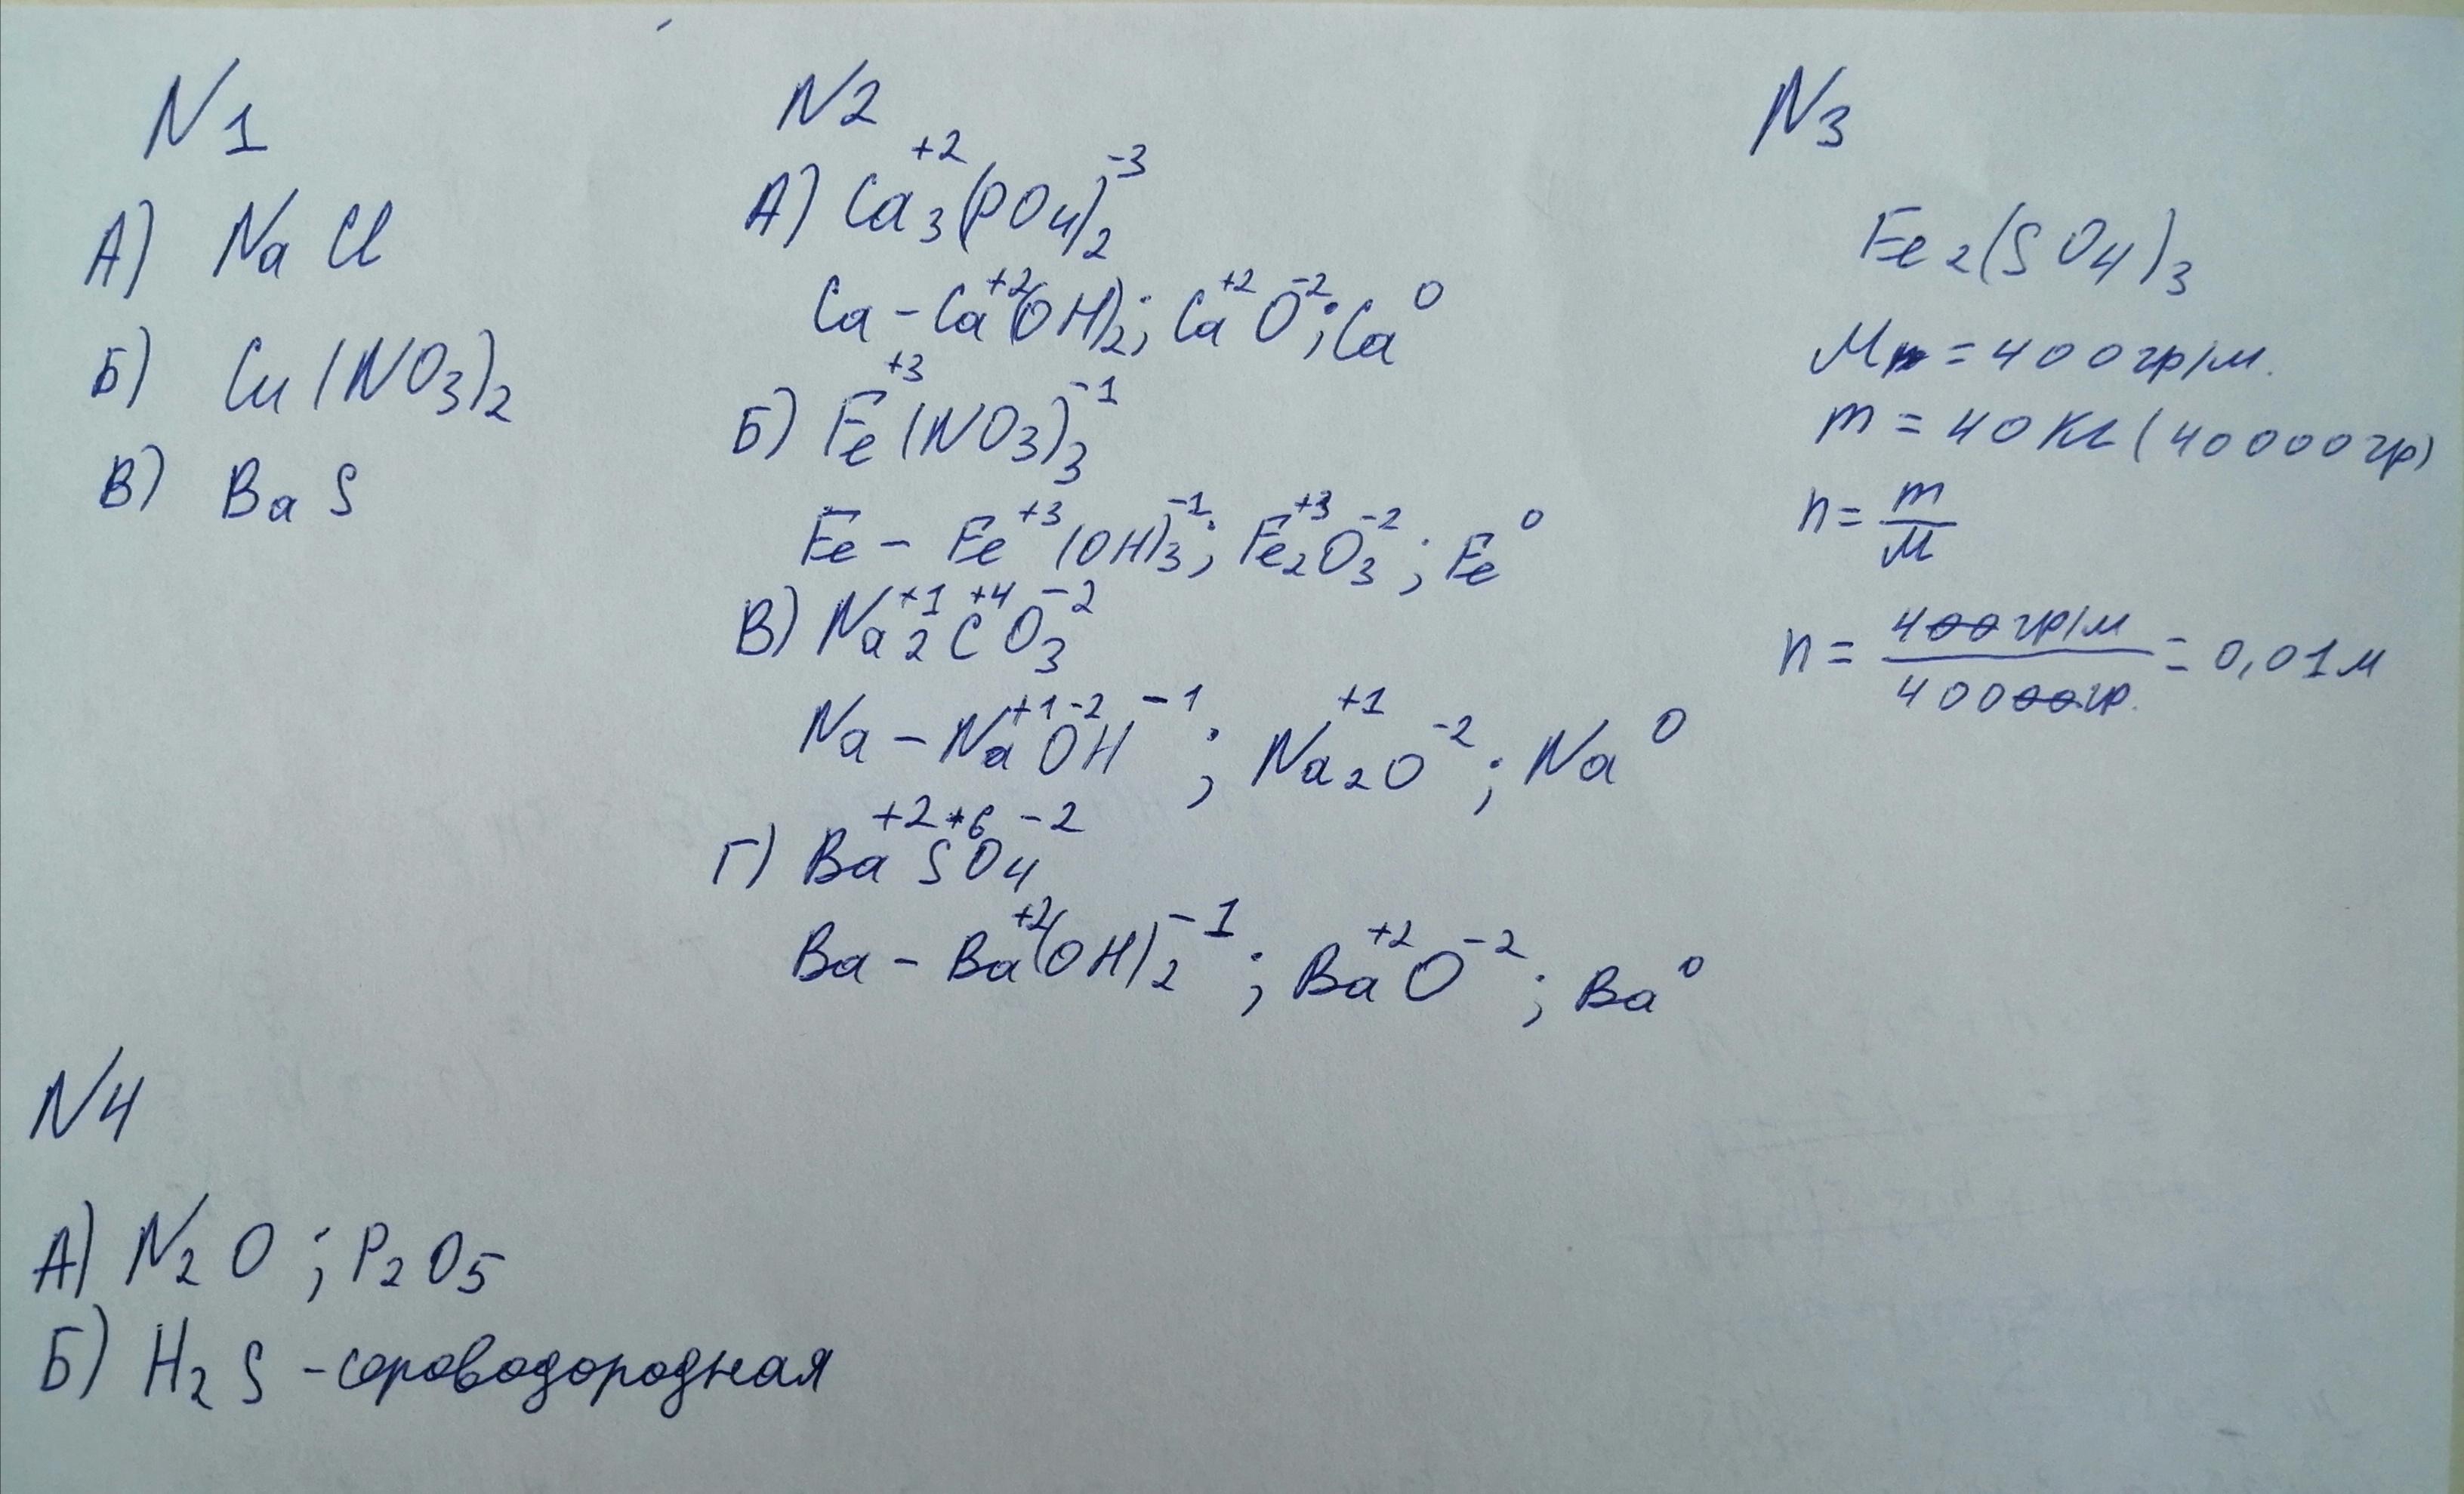 N1
А) NaCl
Б) Cu(NO₃)₂
В) BaS
N2
А) Ca₃⁺²(PO₄)₂⁻³
Ca - Ca⁺²(OH)₂; Ca⁺²O⁻²; Ca⁰
Б) Fe⁺³(NO₃)₃⁻¹
Fe - Fe⁺³(OH)₃⁻¹; Fe₂⁺³O₃⁻²; Fe⁰
В) Na₂⁺¹C⁺⁴O₃⁻²
Na - Na⁺¹O⁻²H⁻¹; Na₂⁺¹O⁻²; Na⁰
Г) Ba⁺²S⁺⁶O₄⁻²
Ba - Ba⁺²(OH)₂⁻¹; Ba⁺²O⁻²; Ba⁰
N3
Fe₂(SO₄)₃
M = 400гр/м.
m = 40 Кг (40000гр)
n = m/M
n = 400гр/м / 40000гр. = 0,01м
N4
А) N₂O; P₂O₅
Б) H₂S - сероводородная